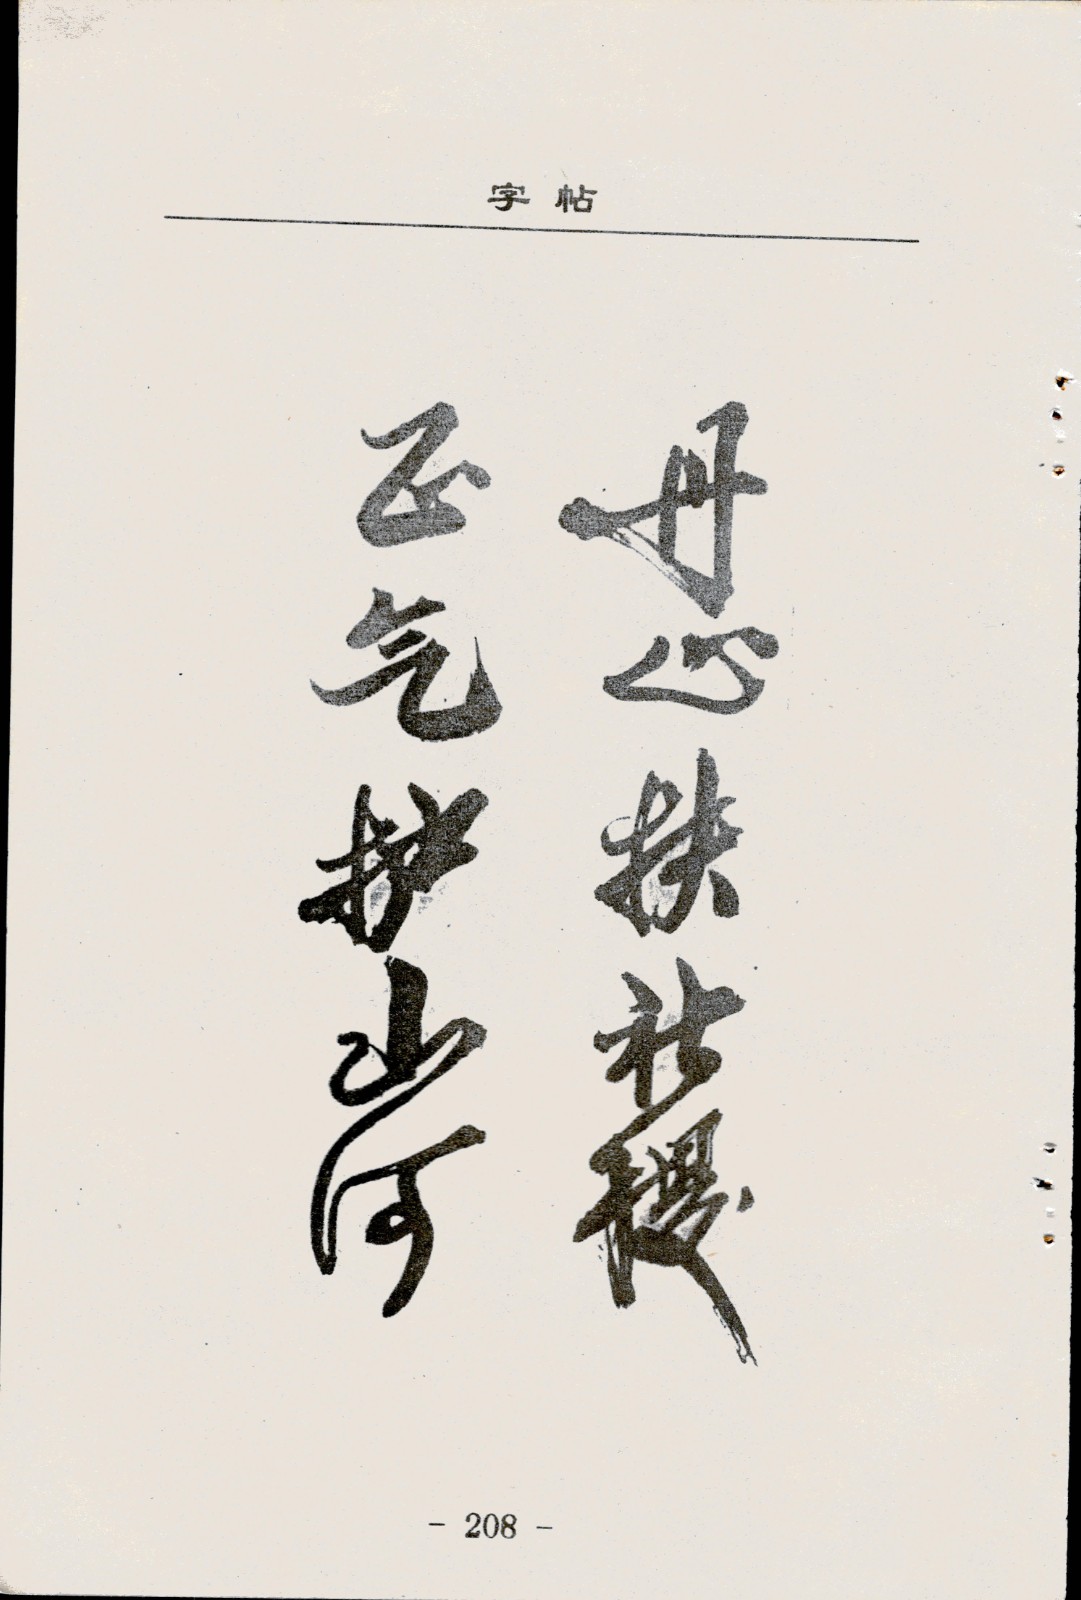 字帖
丹心扶社稷
正气护山河
- 208 -